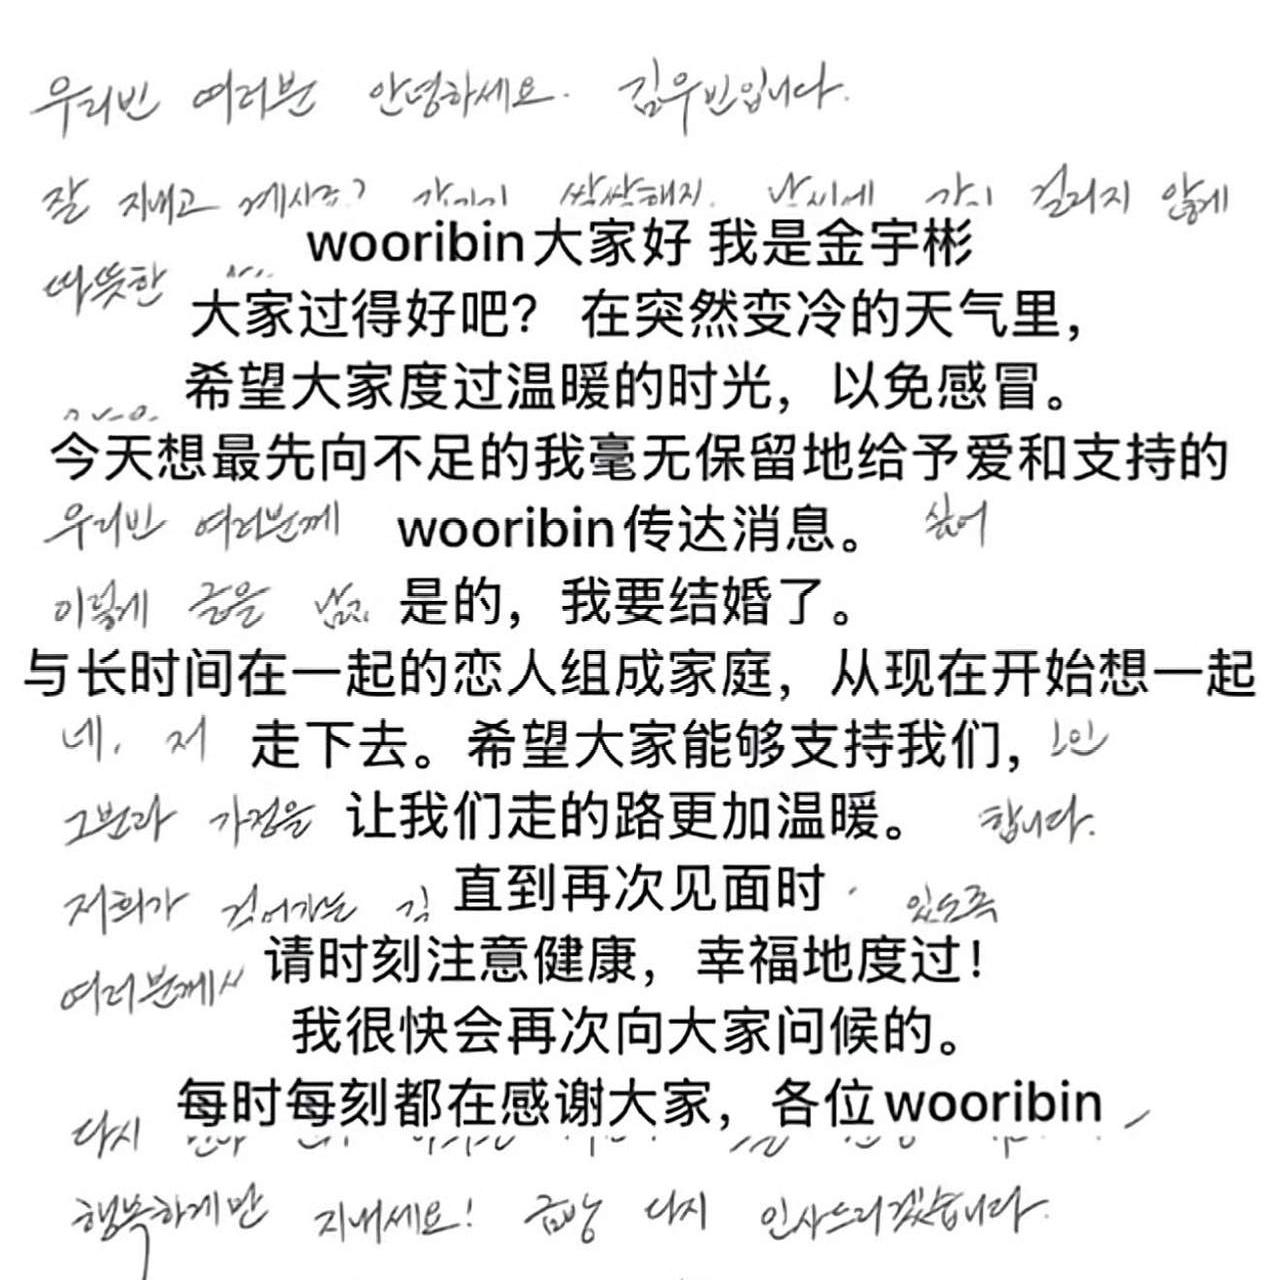 우리빈 여러분 안녕하세요. 김우빈입니다.
잘 지내고 계시죠? 갑자기 쌀쌀해진 날씨에 감기 걸리지 않게
wooribin大家好 我是金宇彬
따뜻한
大家过得好吧？ 在突然变冷的天气里，
希望大家度过温暖的时光，以免感冒。
今天想最先向不足的我毫无保留地给予爱和支持的
우리빈 여러분께 wooribin传达消息。 싶어
이렇게 글을 是的，我要结婚了。
与长时间在一起的恋人组成家庭，从现在开始想一起
네, 저 走下去。希望大家能够支持我们，
그분과 가정을 让我们走的路更加温暖。 합니다.
저희가 걸어가는 直到再次见面时 있도록
여러분께서 请时刻注意健康，幸福地度过！
我很快会再次向大家问候的。
每时每刻都在感谢大家，各位wooribin
다시
행복하게만 지내세요! 금방 다시 인사드리겠습니다.